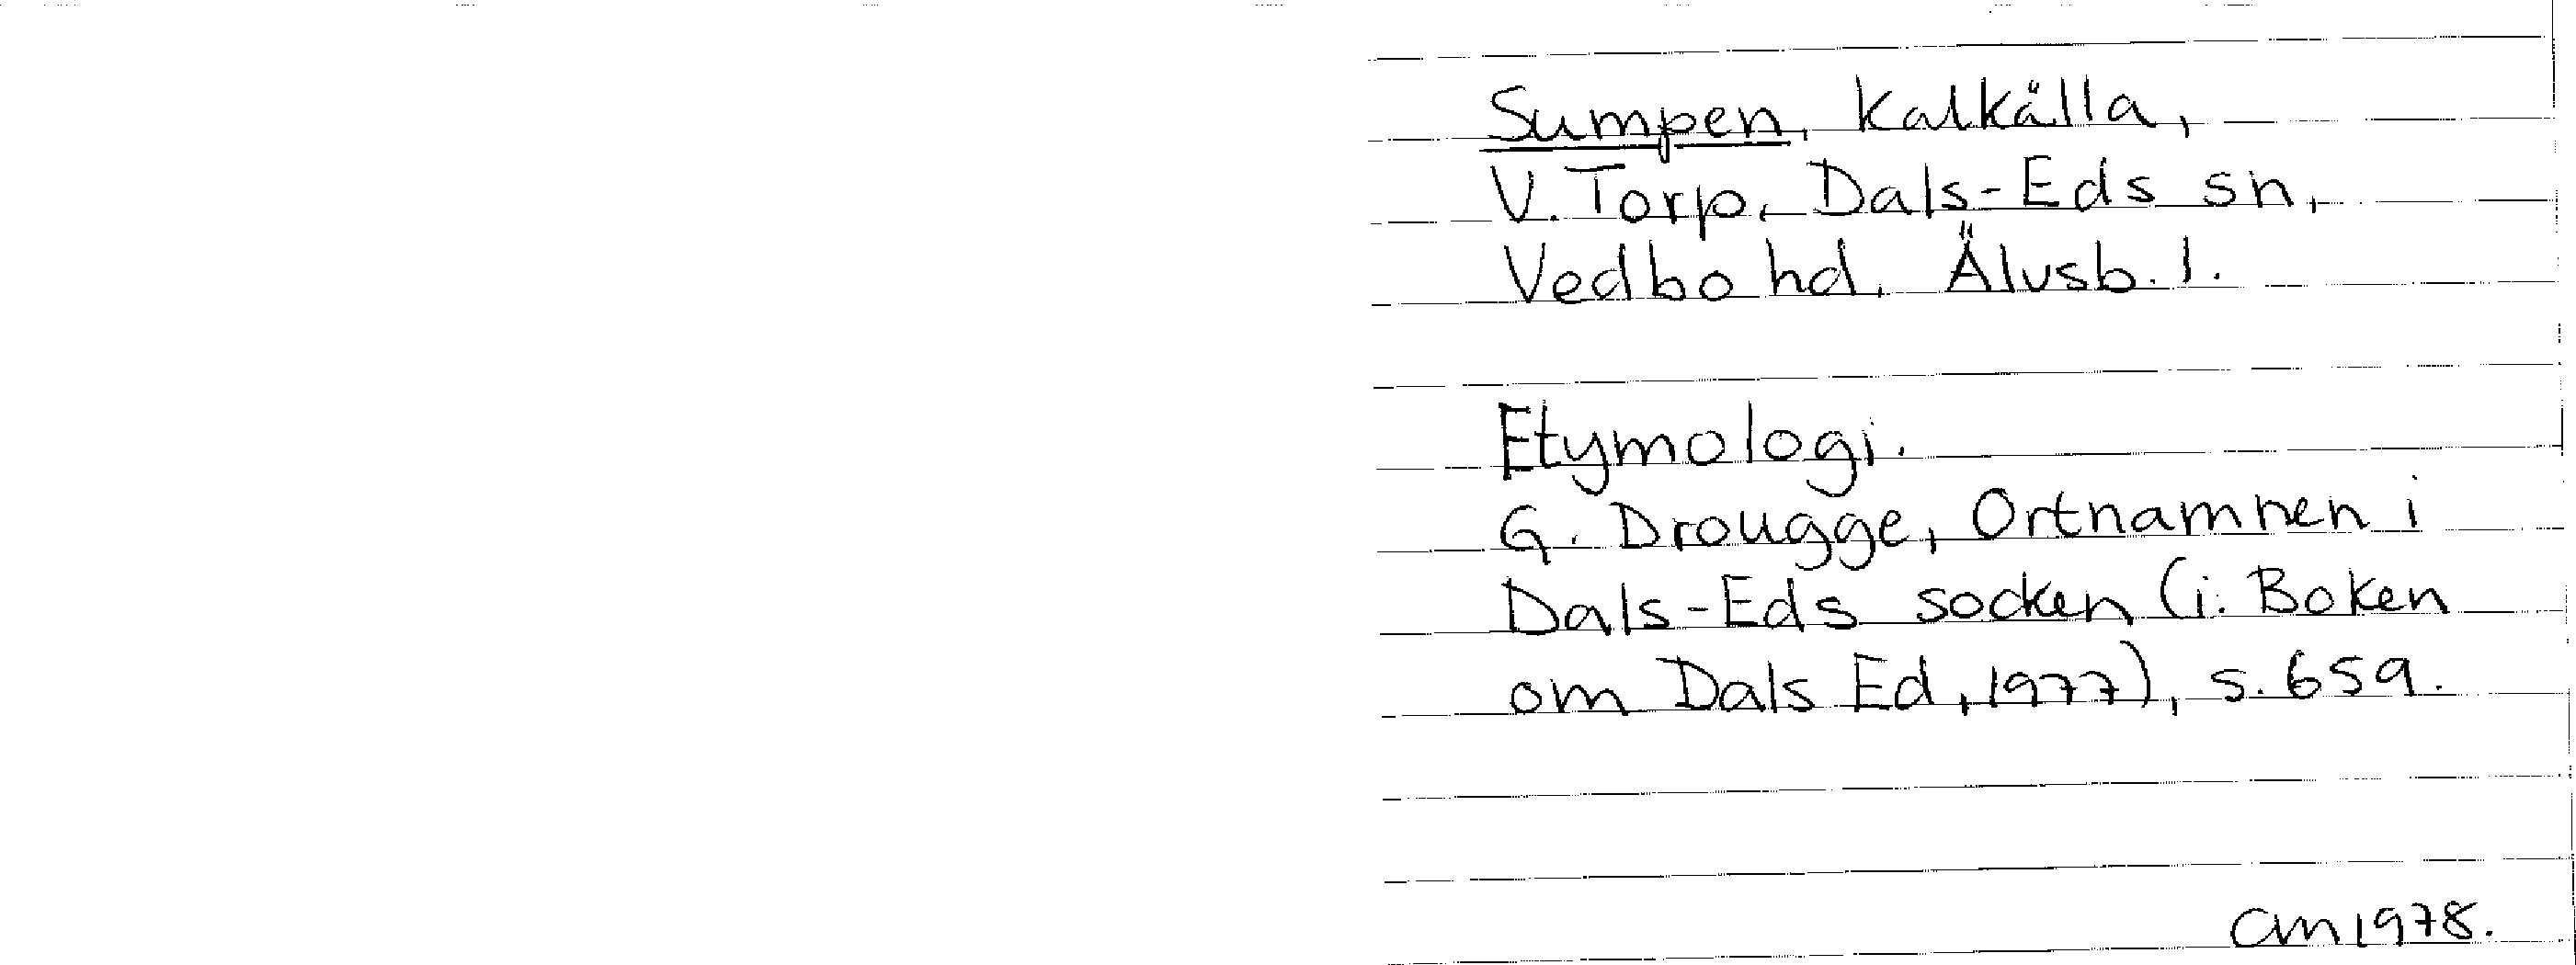 Sumpen, Kalkälla,
V. Torp, Dals-Eds sn,
Vedbo hd, Älvsb. l.
Etymologi.
G. Drougge, Ortnamnen i
Dals-Eds socken (i: Boken
om Dals Ed, 1977), s. 659.
CM 1978.